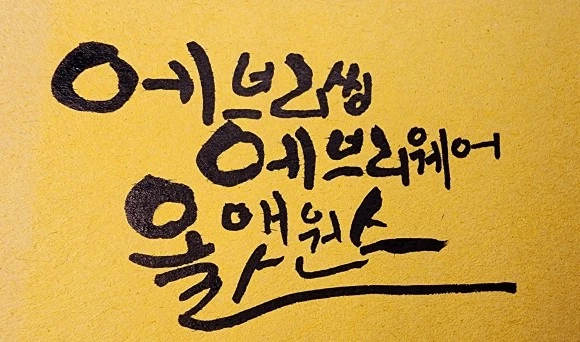 에브리씽
에브리웨어
올 앳 원스